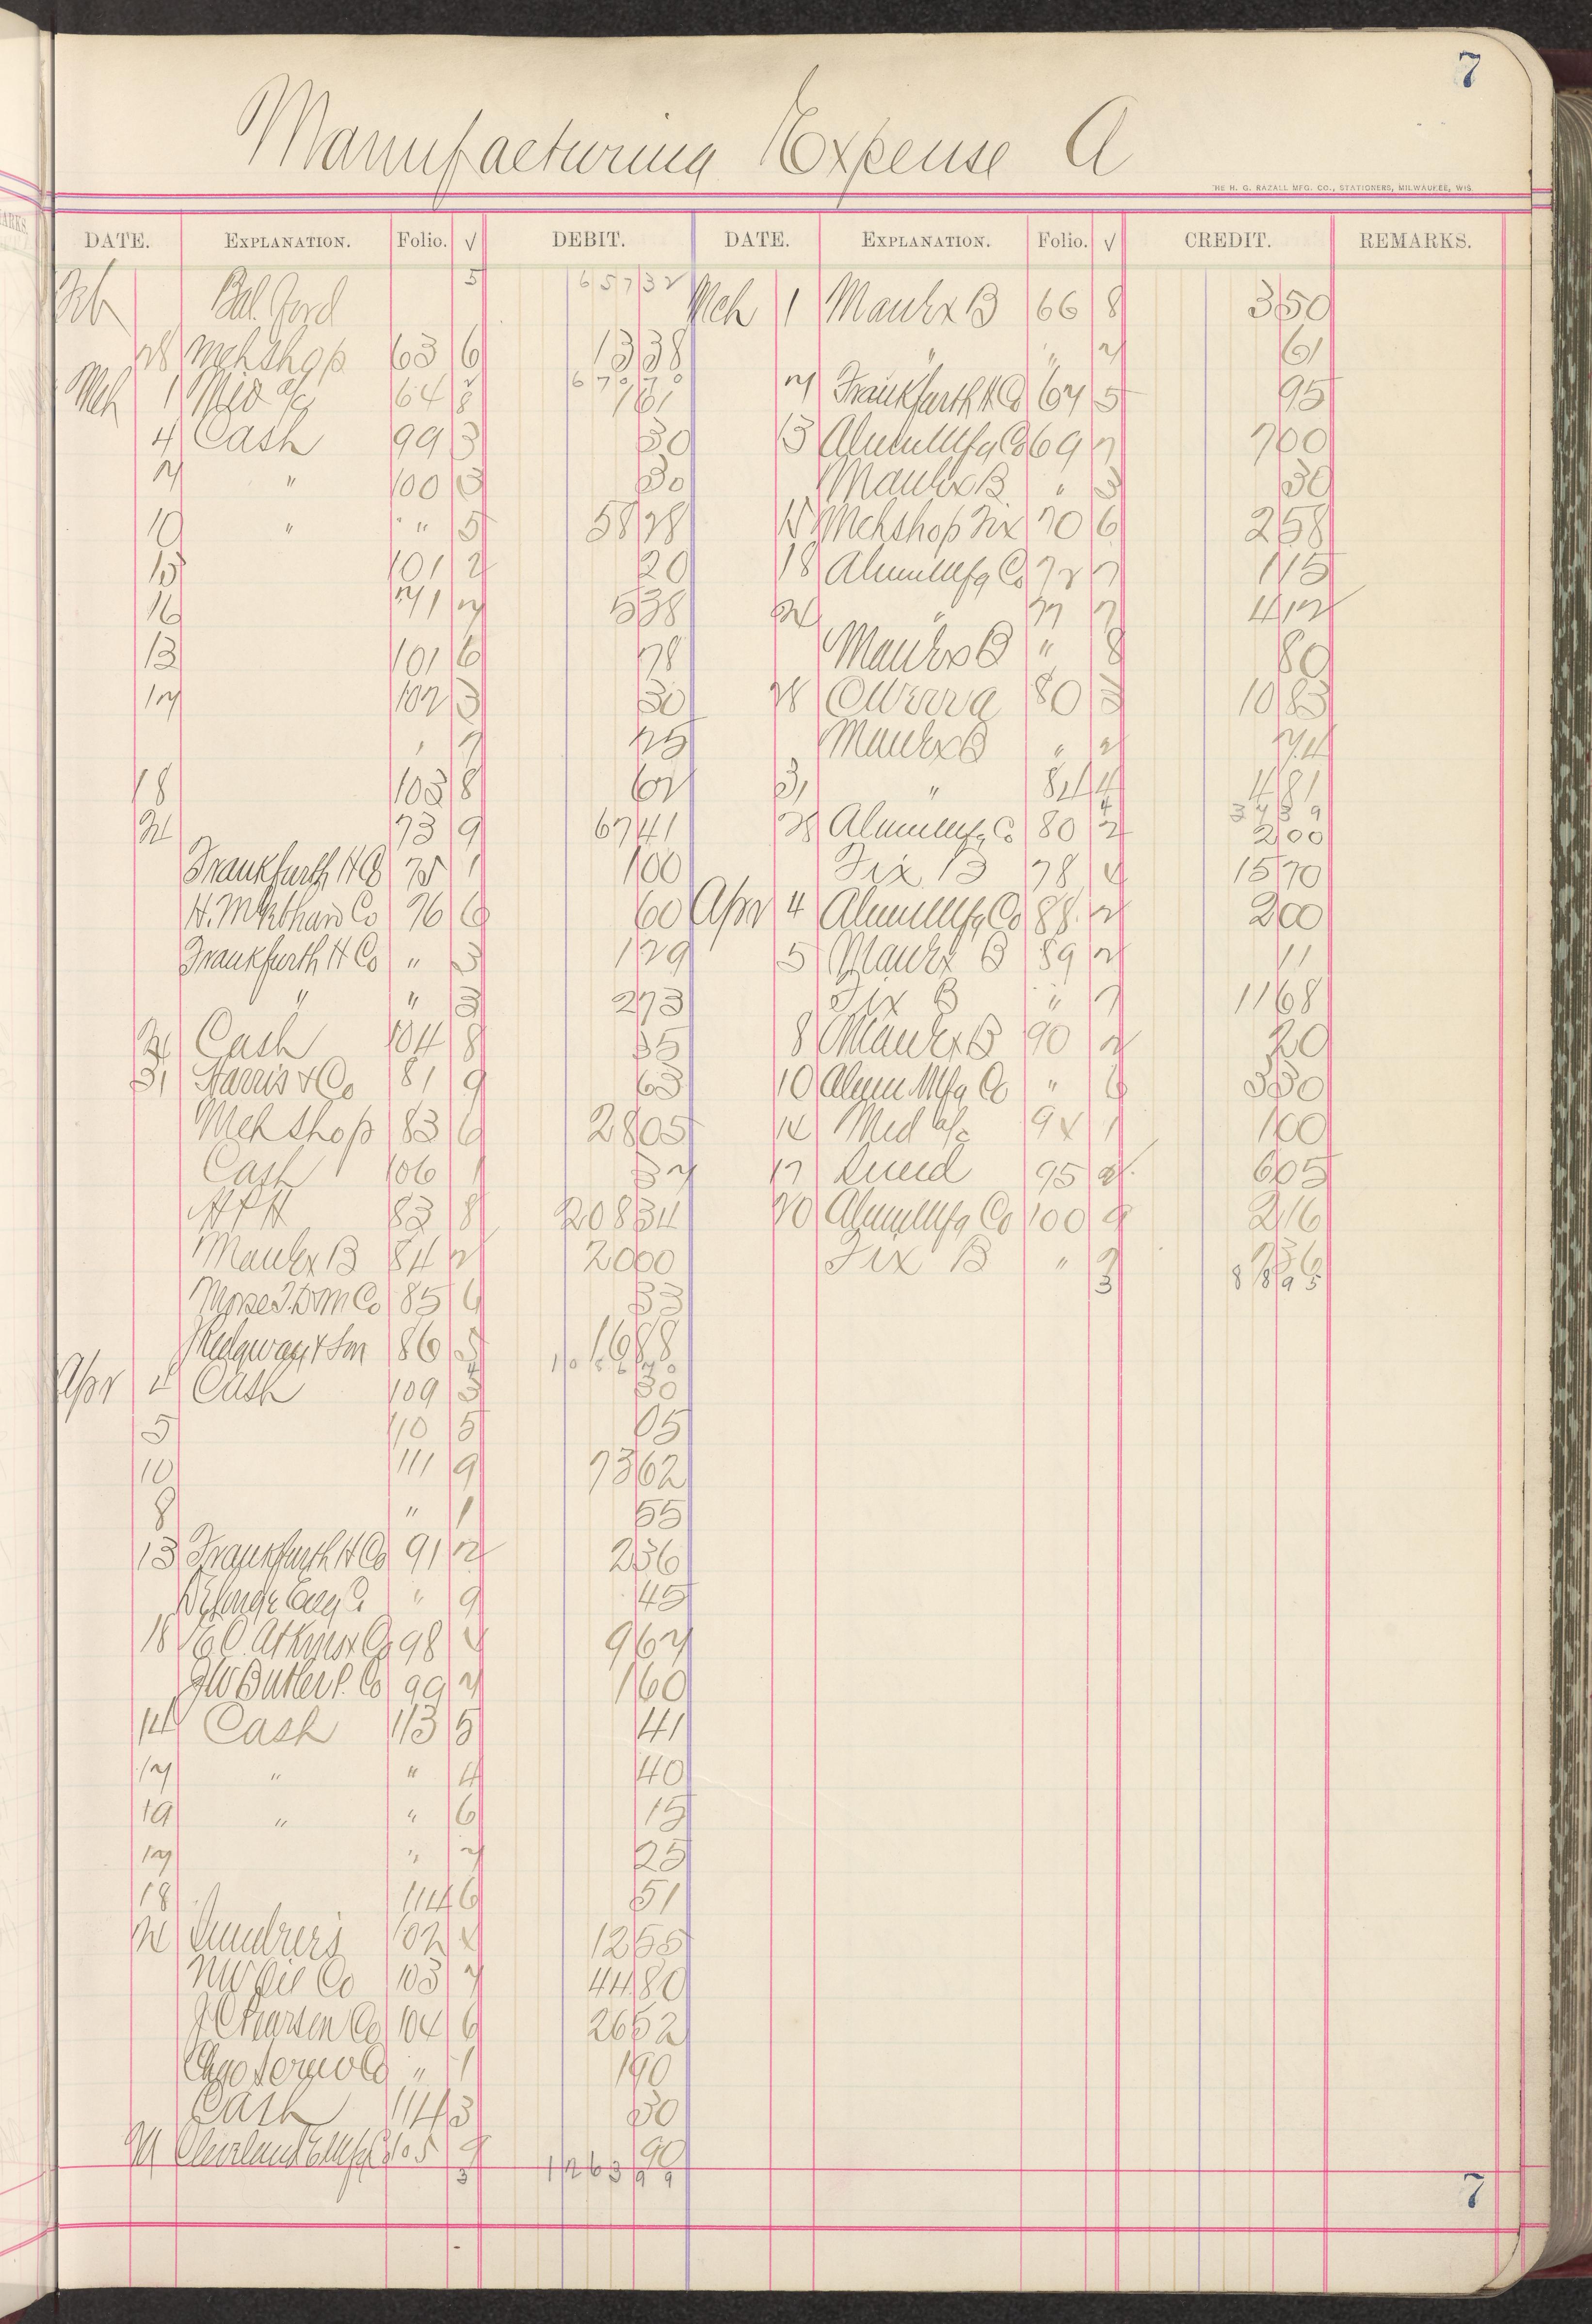 7
Manufacturing Expense A
THE H. G. RAZALL MFG. CO., STATIONERS, MILWAUKEE, WIS.
DATE. EXPLANATION. Folio. √ DEBIT. DATE. EXPLANATION. Folio. √ CREDIT. REMARKS.
Feb Bal. Ford 5 657 32 Mch 1 Manfx B 66 8 3 50
28 Mch Shop 63 6 13 38 " " 2 61
Mch 1 Mdse a/c 64 8 1 61 2 Frankfurth H Co 67 5 95
4 Cash 99 3 30 13 Alum Mfg Co 69 7 7 00
7 " 100 3 30 Manfx B " 3 30
10 " " 5 58 78 15 Mch Shop Fix 70 6 2 58
15 101 2 20 18 Alum Mfg Co 72 7 1 15
16 71 2 5 38 24 " 77 7 4 12
13 101 6 78 Manfx B " 8 80
17 102 3 30 28 80 3 10 83
" 7 25 Manfx B " 2 74
18 103 8 62 31 " 84 4 4 81
34 39
24 73 9 67 41 28 Alum Mfg Co 80 2 2 00
Frankfurth H Co 75 1 1 00 Fix B 78 4 15 70
76 6 60 Apr 4 Alum Mfg Co 88 2 2 00
Frankfurth H Co " 3 1 29 5 Manfx B 89 2 11
" " 3 2 73 Fix B " 7 11 68
Cash 104 8 35 8 Manfx B 90 2 20
31 Harris & Co 81 9 63 10 Alum Mfg Co " 6 3 30
Mch Shop 83 6 28 05 14 Mdse a/c 94 1 1 00
Cash 106 1 37 17 95 2 6 05
83 8 208 34 20 Alum Mfg Co 100 9 2 16
Manfx B 84 2 20 00 Fix B " 7 36
3 88 95
Morse T. D & M Co 85 6 33
Ridgway & Son 86 5 16 88
Apr 4 Cash 109 3 30
5 110 5 05
10 111 9 73 62
8 " 1 55
13 Frankfurth H Co 91 2 2 36
" 9 45
18 E C. Atkins & Co 98 4 9 67
J W Butler P. Co 99 2 1 60
14 Cash 113 5 41
17 " " 4 40
19 " " 6 15
17 " 7 25
18 114 6 51
24 Sundries 102 4 12 55
NW Oil Co 103 7 44 80
104 6 26 52
Chgo Screw Co " 1 1 90
Cash 114 3 30
105 9 90
3 1263 99
7